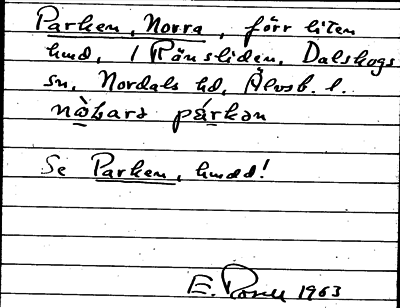 Parken, Norra, förr liten
hmd, i Rånsliden, Dalskogs
sn, Nordals hd, Älvsb. l.
nò̱ɽarə pá̱rkən
Se Parken, hmdd!
E. 1963